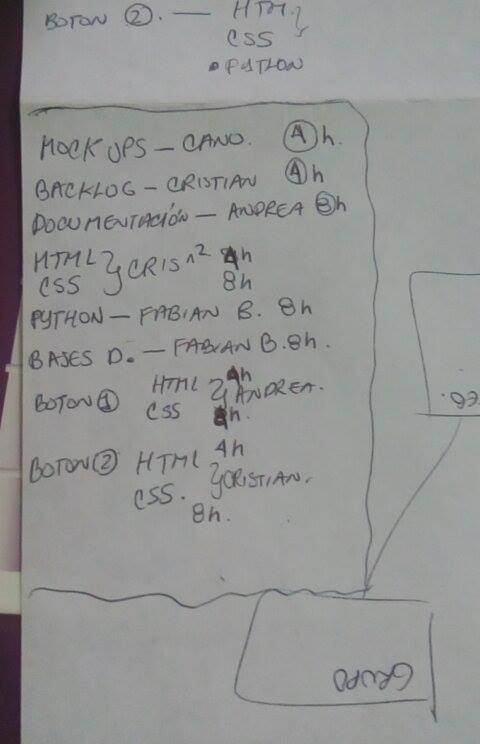 BOTON ②. — HTML }
CSS
• PYTHON
MOCKUPS — CANO. ④ h.
BACKLOG — CRISTIAN ④ h
DOCUMENTACIÓN — ANDREA ③h
HTML } CRIS n² 4h
CSS 8h
PYTHON — FABIAN B. 8h
BASES D. — FABIAN B. 8h.
4h
BOTON ① HTML } ANDREA.
CSS h.
4h
BOTON ② HTML
CSS. } CRISTIAN.
8h.
GRUPO